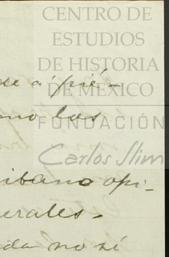 CENTRO DE
ESTUDIOS
DE HISTORIA
DE MÉXICO
FUNDACIÓN
Carlos Slim
se á pié-
mo los
ribano opi-
erales.
da no sé